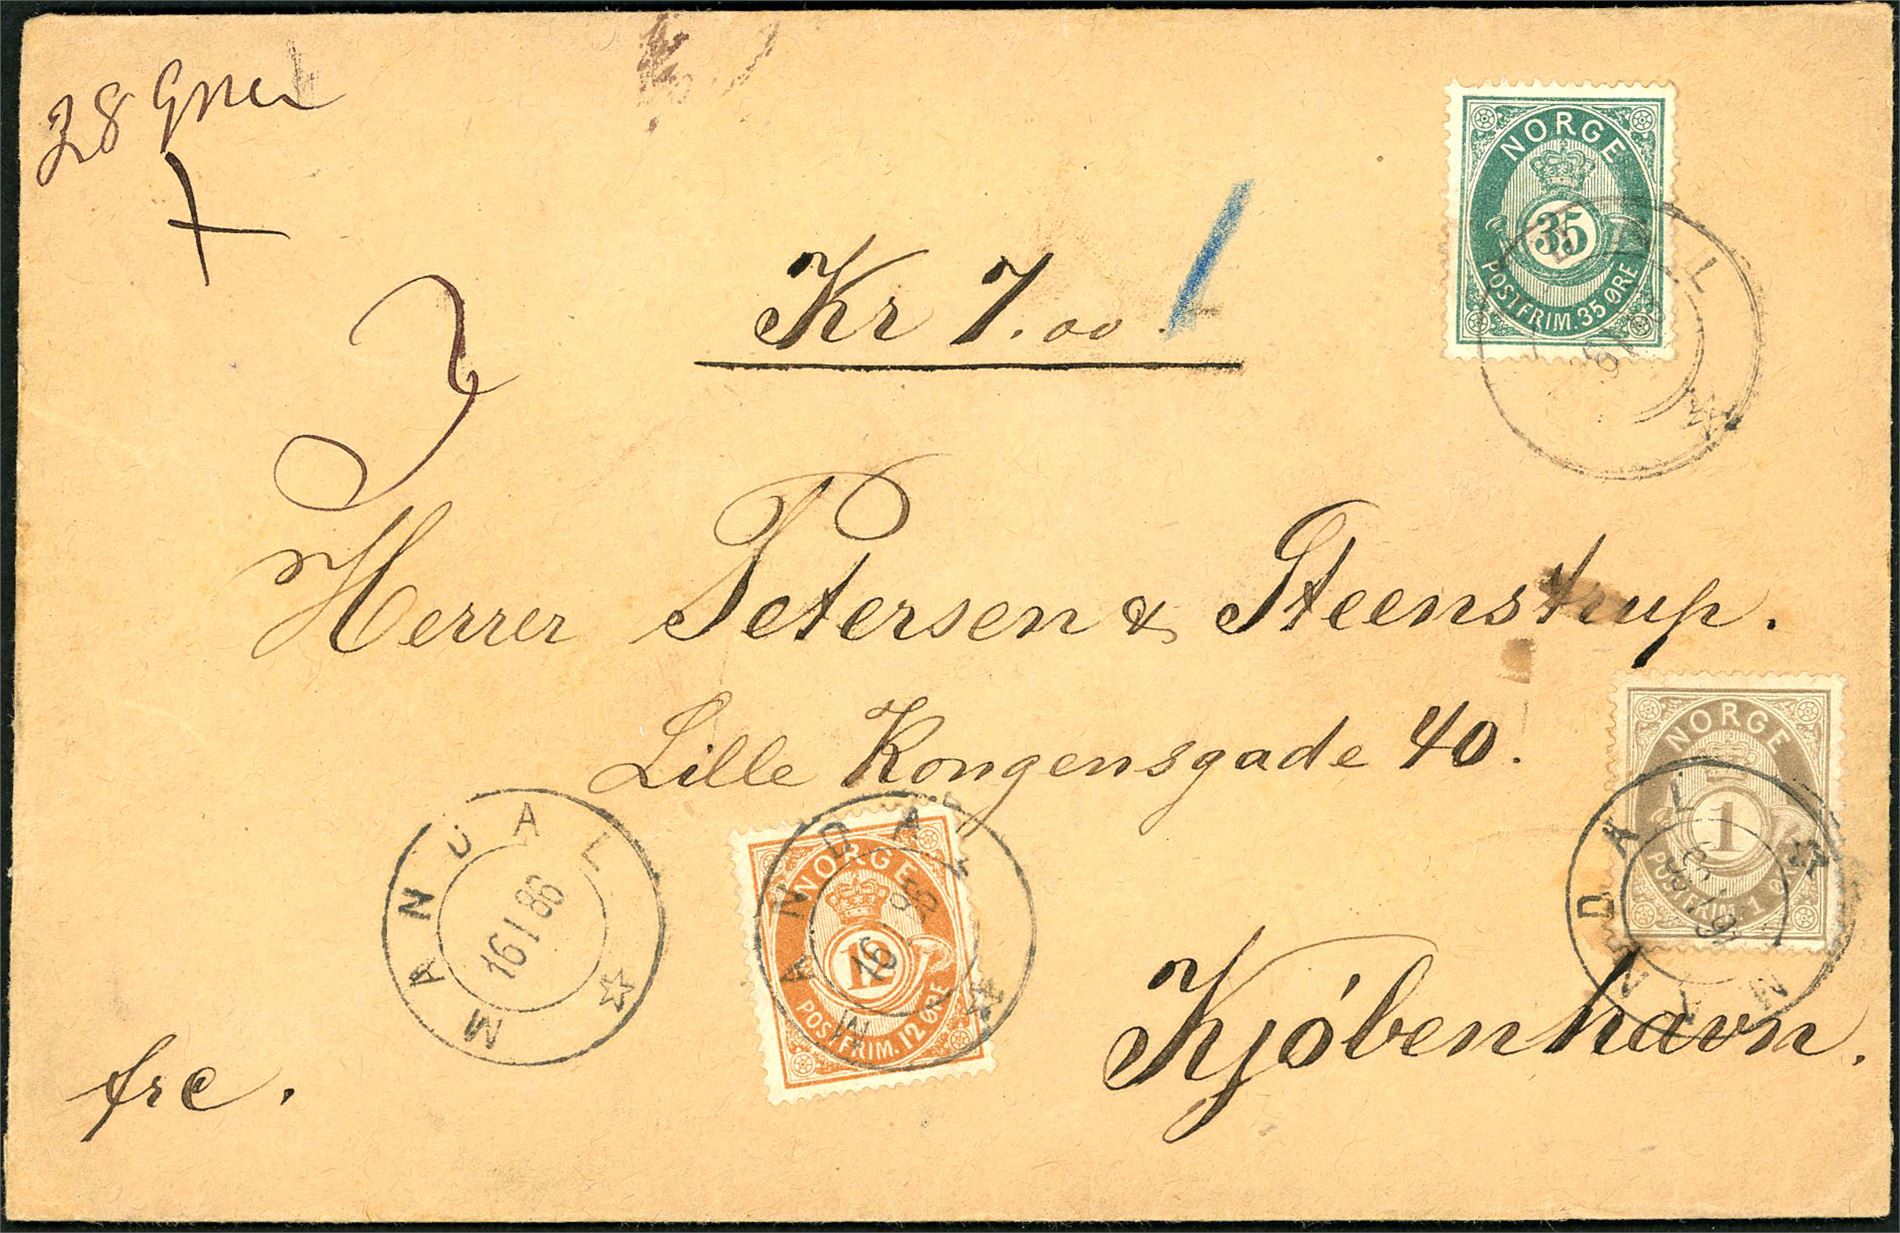 28 Gmer
Kr 7.00.-
Herrer Petersen & Steenstrup.
Lille Kongensgade 40.
Kjóbenhavn.
frc.
NORGE
35
POSTFRIM. 35 ØRE
NORGE
1
POSTFRIM. 1 ØRE
NORGE
12
POSTFRIM. 12 ØRE
MANDAL
16 I 86
MANDAL
16 I 86
MANDAL
16 I 86